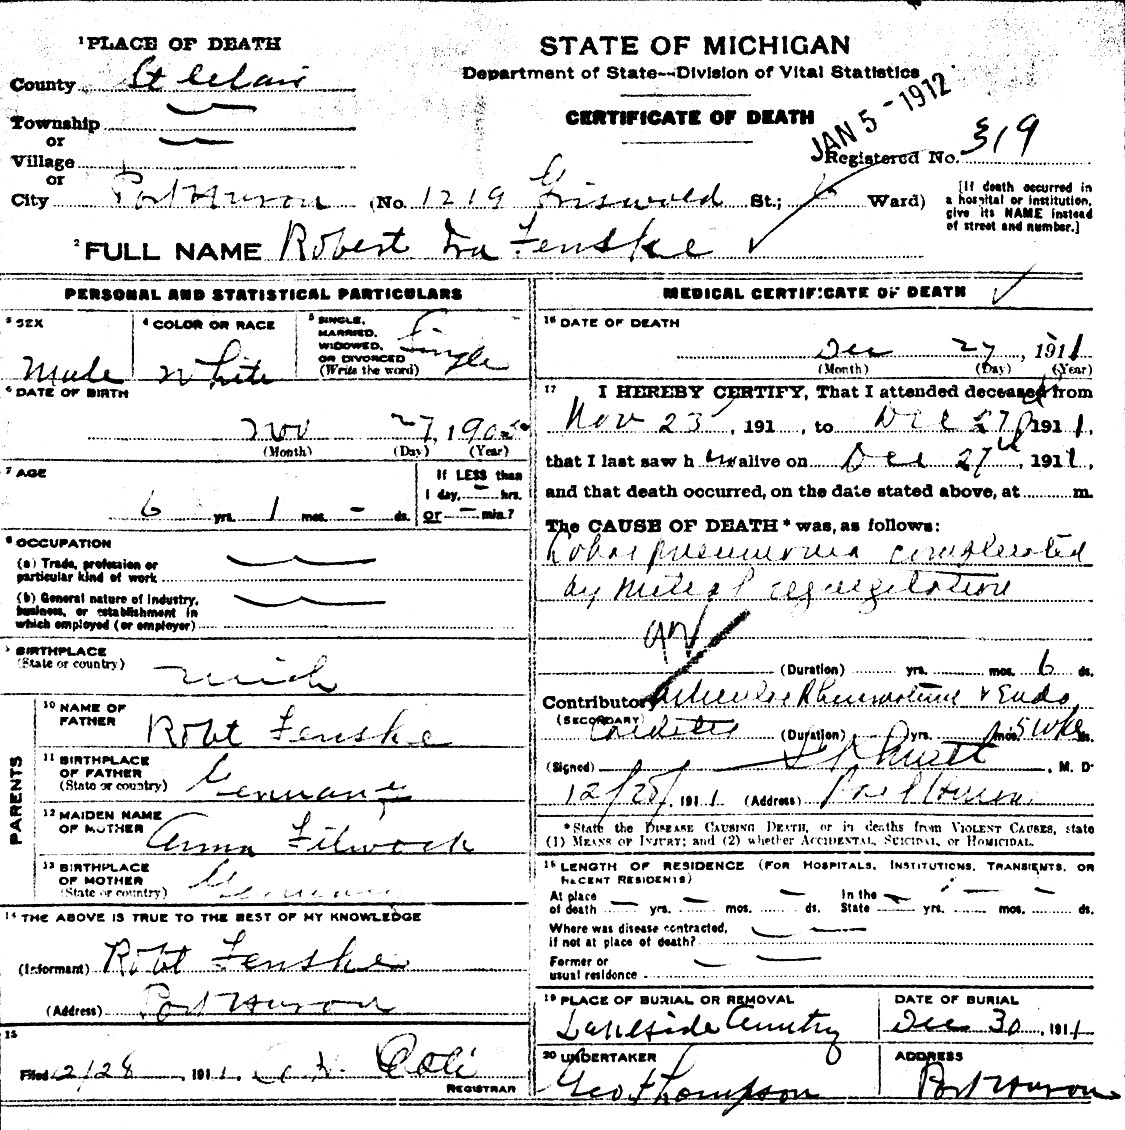 STATE OF MICHIGAN
Department of State--Division of Vital Statistics
CERTIFICATE OF DEATH
JAN 5 - 1912
Registered No. 319
1 PLACE OF DEATH
County St Clair
Township
or
Village
or
City Port Huron (No. 1219 Griswold St.; 6 Ward)
[If death occurred in
a hospital or institution,
give its NAME instead
of street and number.]
2 FULL NAME Robert Ira Fenske
PERSONAL AND STATISTICAL PARTICULARS
3 SEX
Male
4 COLOR OR RACE
White
5 SINGLE,
MARRIED,
WIDOWED,
OR DIVORCED
(Write the word)
Single
6 DATE OF BIRTH
Nov 27, 1905
(Month) (Day) (Year)
7 AGE
6 yrs. 1 mos. - ds.
If LESS than
1 day, - hrs.
or - min.?
8 OCCUPATION
(a) Trade, profession or
particular kind of work
(b) General nature of industry,
business, or establishment in
which employed (or employer)
9 BIRTHPLACE
(State or country)
Mich
PARENTS
10 NAME OF
FATHER
Robt Fenske
11 BIRTHPLACE
OF FATHER
(State or country)
Germany
12 MAIDEN NAME
OF MOTHER
Anna
13 BIRTHPLACE
OF MOTHER
(State or country)
Germany
14 THE ABOVE IS TRUE TO THE BEST OF MY KNOWLEDGE
(Informant) Robt Fenske
(Address) Port Huron
15
Filed 12/28, 1911
REGISTRAR
MEDICAL CERTIFICATE OF DEATH
16 DATE OF DEATH
Dec 27, 1911
(Month) (Day) (Year)
17 I HEREBY CERTIFY, That I attended deceased from
Nov 23, 191 , to Dec 27th 1911,
that I last saw h im alive on Dec 27th, 1911,
and that death occurred, on the date stated above, at m.
The CAUSE OF DEATH* was, as follows:
Lobar pneumonia complicated
by Mitral regurgitation
(Duration) yrs. mos. 6 ds.
Contributory Articular Rheumatism & Endo
(SECONDARY)
carditis (Duration) yrs. mos. 5 wks ds.
(Signed) M. D.
12/28/ 1911 (Address) Port Huron
*State the DISEASE CAUSING DEATH, or in deaths from VIOLENT CAUSES, state
(1) MEANS OF INJURY; and (2) whether ACCIDENTAL, SUICIDAL, OR HOMICIDAL.
18 LENGTH OF RESIDENCE (FOR HOSPITALS, INSTITUTIONS, TRANSIENTS, OR
RECENT RESIDENTS)
At place
of death - yrs. - mos. - ds.
In the
State - yrs. - mos. - ds.
Where was disease contracted,
if not at place of death?
Former or
usual residence
19 PLACE OF BURIAL OR REMOVAL
Lakeside Cemetry
DATE OF BURIAL
Dec 30, 1911
20 UNDERTAKER
Geo F Thompson
ADDRESS
Port Huron